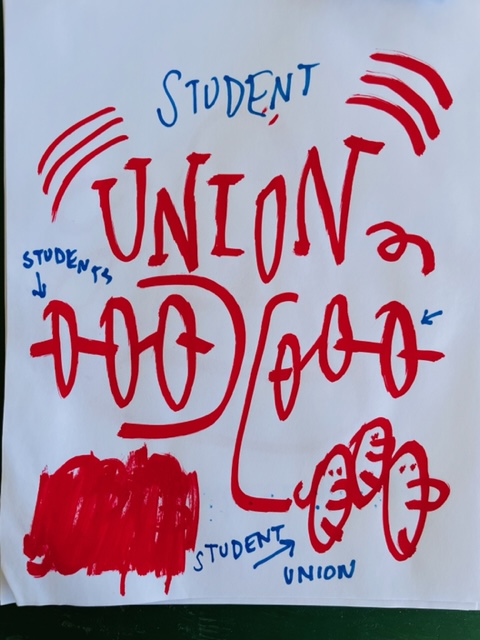 STUDENT
UNION
STUDENTS
STUDENT
UNION